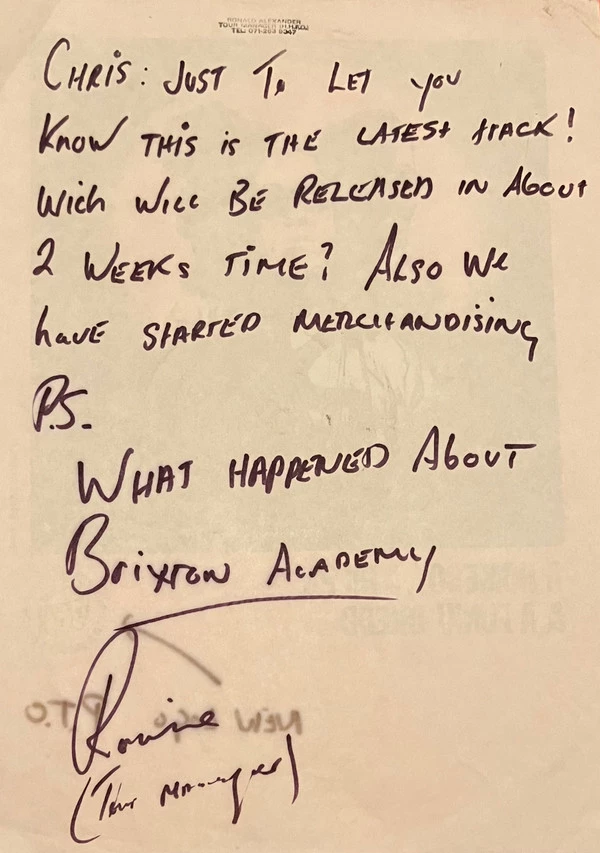 RONALD ALEXANDER
TOUR MANAGER (H.H.KDJ)
CHRIS: JUST To LET you
KNOW THIS is THE LATEST tRACK!
WICH WILL BE RELEASED IN About
2 WEEKS TIME? ALSO We
have STARTED MERCHANDISING
P.S.
WHAT HAPPENED About
Brixton ACADEMY
Ronnie
(Tour Manager)
NEW P.T.O.